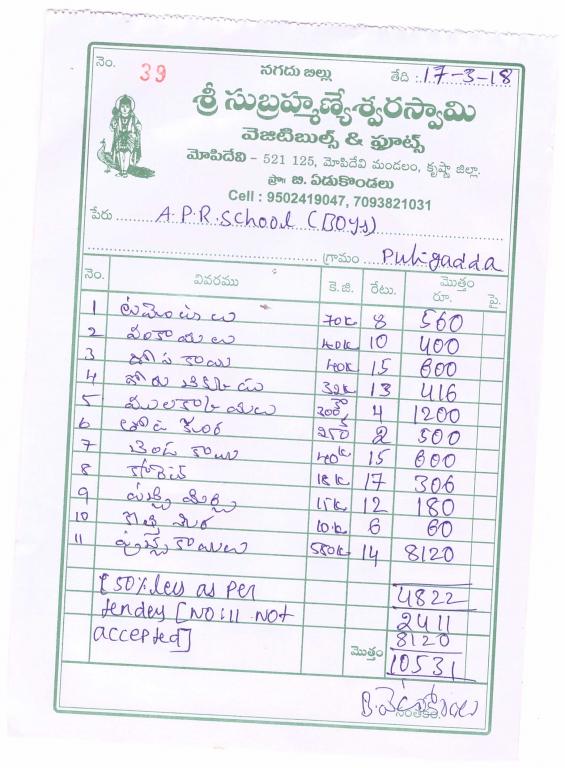 నెం. 39 నగదు బిల్లు తేది : 17-3-18
శ్రీ సుబ్రహ్మణ్యేశ్వరస్వామి
వెజిటిబుల్స్ & ఫ్రూట్స్
మోపిదేవి - 521 125, మోపిదేవి మండలం, కృష్ణా జిల్లా.
ప్రొ॥ బి. ఏడుకొండలు
Cell : 9502419047, 7093821031
పేరు A.P.R. School (Boys)
గ్రామం Puligadda
నెం. వివరము కె.జి. రేటు. మొత్తం రూ. పై.
1 టమోటాలు 70K 8 560
2 వంకాయలు 40K 10 400
3 దోసకాయ 40K 15 600
4 గోరుచిక్కుడు 32K 13 416
5 ములకాయలు 300 4 1200
6 తోటకూర 250 2 500
7 బెండకాయ 40K 15 600
8 క్యారెట్ 18K 17 306
9 పచ్చిమిర్చి 15K 12 180
10 కొత్తిమీర 10K 6 60
11 కాయలు 580K 14 8120
[50% less as per 4822
tender [NO:11 Not 2411
accepted] 8120
మొత్తం 10531
సంతకం.